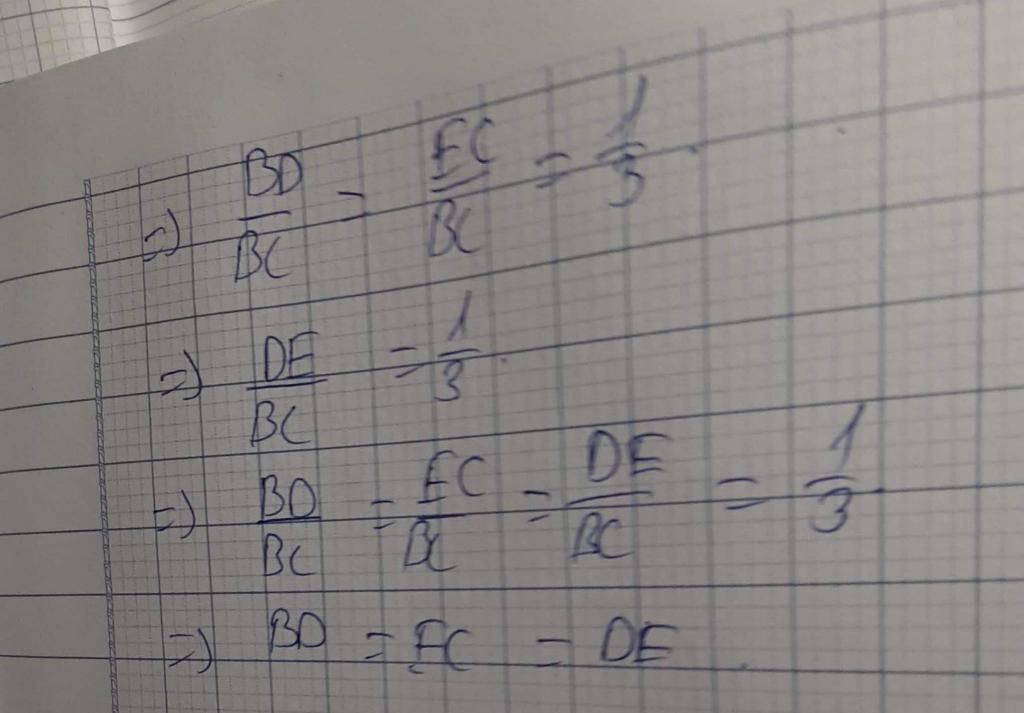 =) BD/BC = EC/BC = 1/3.
=) DE/BC = 1/3.
=) BD/BC = EC/BC = DE/BC = 1/3
=) BD = EC = DE.